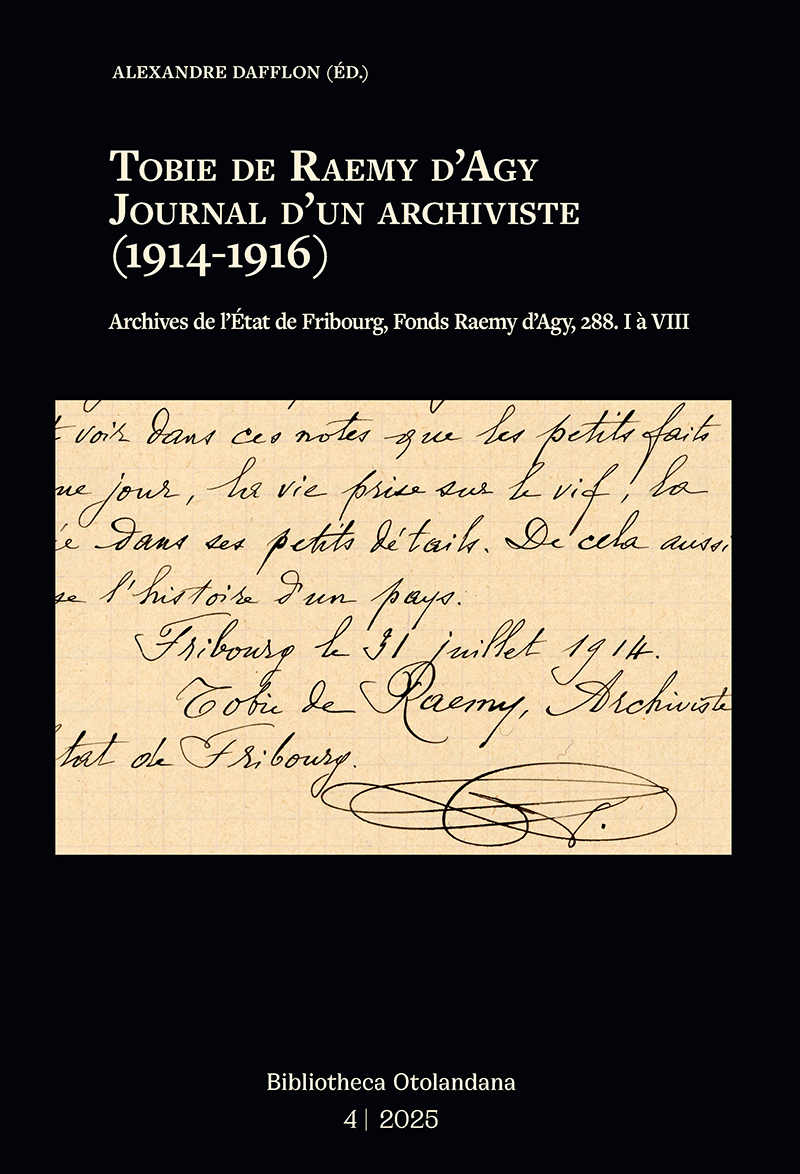 ALEXANDRE DAFFLON (ÉD.)
TOBIE DE RAEMY D'AGY
JOURNAL D'UN ARCHIVISTE
(1914-1916)
Archives de l'État de Fribourg, Fonds Raemy d'Agy, 288. I à VIII
t voir dans ces notes que les petits faits
ue jour, la vie prise sur le vif, la
ie dans ses petits détails. De cela aussi
se l'histoire d'un pays.
Fribourg le 31 juillet 1914.
Tobie de Raemy, Archiviste
tat de Fribourg.
Bibliotheca Otolandana
4 | 2025